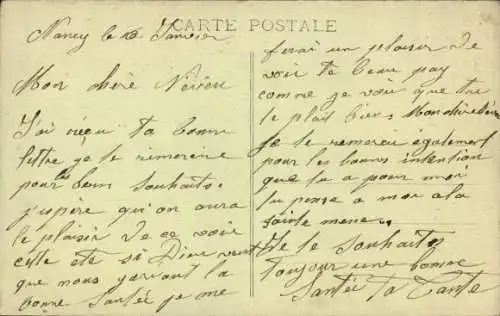 CARTE POSTALE
Nancy le 10 Janvier
Mon chère Neveu
J'ai reçu ta bonne
lettre je te remercie
pour tes bons souhaits.
j'espère qu'on aura
le plaisir de ce voir
cette été si Dieu veut
que nous gardant la
bonne Santée je me
ferai un plaisir de
voir ta beau pay
comme je voie que tu
le plait bien. Mon chère Neveu
Je te remercie également
pour les bonnes intention
que tu a pour moi
tu pense a moi a la
sainte mene..
Je te Souhaite
toujour une bonne
Santée ta Tante